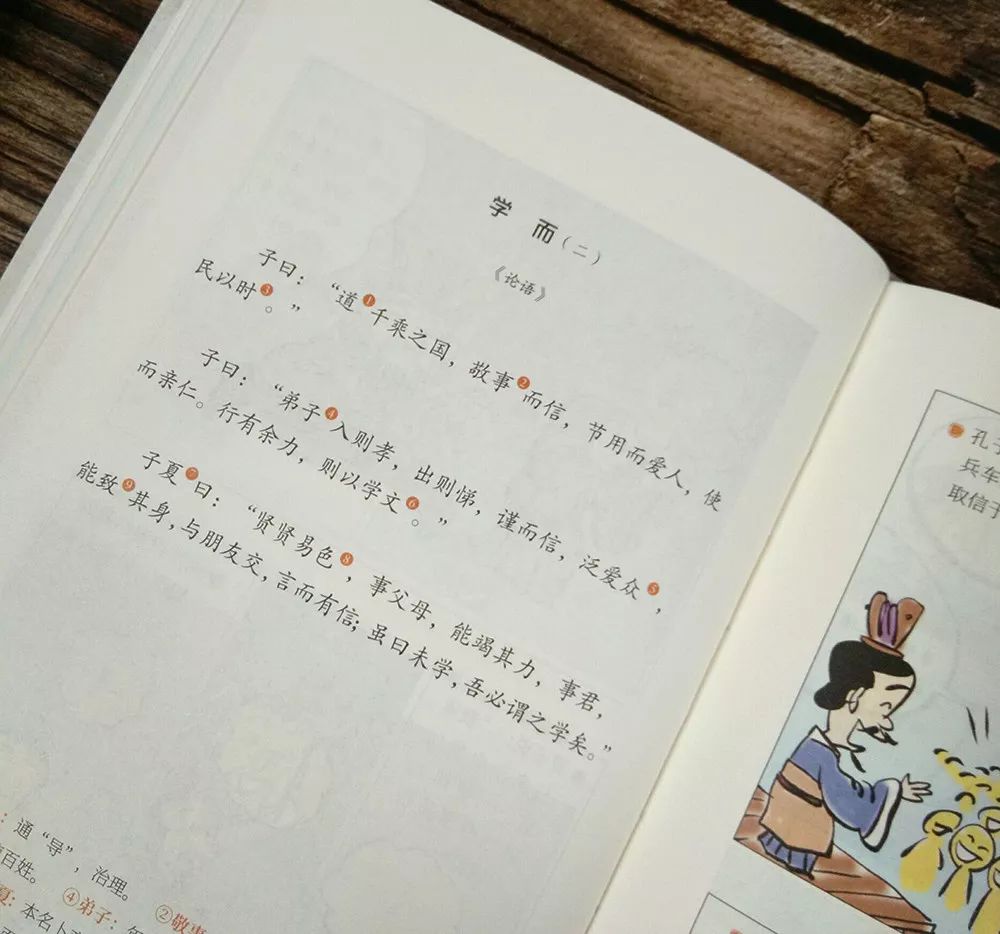 学 而（二）
《论语》
子曰：“道①千乘之国，敬事②而信，节用而爱人，使
民以时③。”
子曰：“弟子④入则孝，出则悌，谨而信，泛爱众⑤，
而亲仁。行有余力，则以学文⑥。”
子夏⑦曰：“贤贤易色⑧，事父母，能竭其力，事君，
能致⑨其身，与朋友交，言而有信；虽曰未学，吾必谓之学矣。”
：通“导”，治理。 ②敬事
百姓。 ④弟子：
夏：本名卜
孔子
兵车
取信于